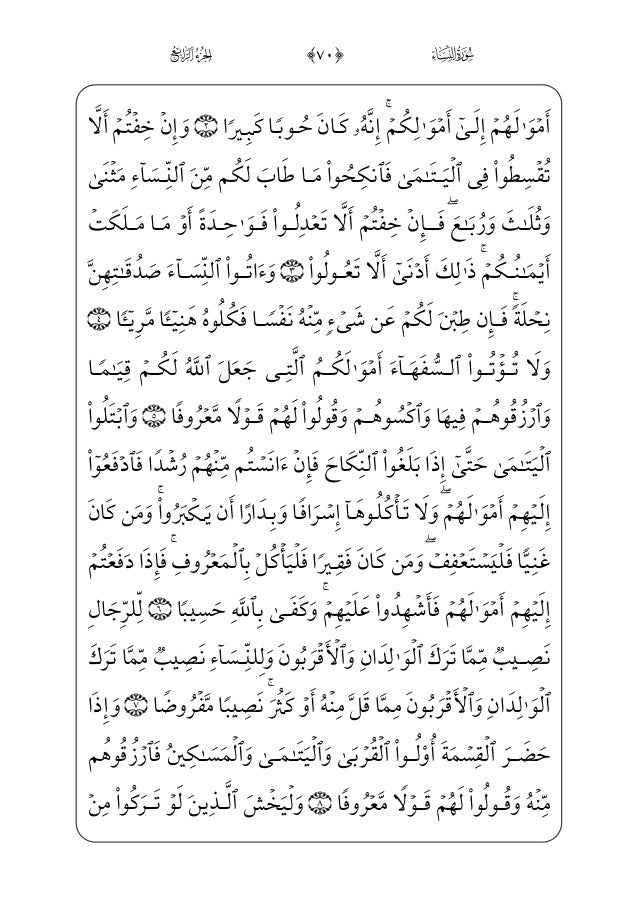 سُورَةُ النِّسَاءِ ﴿٧٠﴾ الجُزْءُ الرَّابِعُ
أَمْوَٰلَهُمْ إِلَىٰٓ أَمْوَٰلِكُمْ ۚ إِنَّهُۥ كَانَ حُوبًا كَبِيرًا ٢ وَإِنْ خِفْتُمْ أَلَّا
تُقْسِطُوا۟ فِى ٱلْيَتَـٰمَىٰ فَٱنكِحُوا۟ مَا طَابَ لَكُم مِّنَ ٱلنِّسَآءِ مَثْنَىٰ
وَثُلَـٰثَ وَرُبَـٰعَ ۖ فَإِنْ خِفْتُمْ أَلَّا تَعْدِلُوا۟ فَوَٰحِدَةً أَوْ مَا مَلَكَتْ
أَيْمَـٰنُكُمْ ۚ ذَٰلِكَ أَدْنَىٰٓ أَلَّا تَعُولُوا۟ ٣ وَءَاتُوا۟ ٱلنِّسَآءَ صَدُقَـٰتِهِنَّ
نِحْلَةً ۚ فَإِن طِبْنَ لَكُمْ عَن شَىْءٍ مِّنْهُ نَفْسًا فَكُلُوهُ هَنِيٓـًٔا مَّرِيٓـًٔا ٤
وَلَا تُؤْتُوا۟ ٱلسُّفَهَآءَ أَمْوَٰلَكُمُ ٱلَّتِى جَعَلَ ٱللَّهُ لَكُمْ قِيَـٰمًا
وَٱرْزُقُوهُمْ فِيهَا وَٱكْسُوهُمْ وَقُولُوا۟ لَهُمْ قَوْلًا مَّعْرُوفًا ٥ وَٱبْتَلُوا۟
ٱلْيَتَـٰمَىٰ حَتَّىٰٓ إِذَا بَلَغُوا۟ ٱلنِّكَاحَ فَإِنْ ءَانَسْتُم مِّنْهُمْ رُشْدًا فَٱدْفَعُوٓا۟
إِلَيْهِمْ أَمْوَٰلَهُمْ ۖ وَلَا تَأْكُلُوهَآ إِسْرَافًا وَبِدَارًا أَن يَكْبَرُوا۟ ۚ وَمَن كَانَ
غَنِيًّا فَلْيَسْتَعْفِفْ ۖ وَمَن كَانَ فَقِيرًا فَلْيَأْكُلْ بِٱلْمَعْرُوفِ ۚ فَإِذَا دَفَعْتُمْ
إِلَيْهِمْ أَمْوَٰلَهُمْ فَأَشْهِدُوا۟ عَلَيْهِمْ ۚ وَكَفَىٰ بِٱللَّهِ حَسِيبًا ٦ لِّلرِّجَالِ
نَصِيبٌ مِّمَّا تَرَكَ ٱلْوَٰلِدَانِ وَٱلْأَقْرَبُونَ وَلِلنِّسَآءِ نَصِيبٌ مِّمَّا تَرَكَ
ٱلْوَٰلِدَانِ وَٱلْأَقْرَبُونَ مِمَّا قَلَّ مِنْهُ أَوْ كَثُرَ ۚ نَصِيبًا مَّفْرُوضًا ٧ وَإِذَا
حَضَرَ ٱلْقِسْمَةَ أُو۟لُوا۟ ٱلْقُرْبَىٰ وَٱلْيَتَـٰمَىٰ وَٱلْمَسَـٰكِينُ فَٱرْزُقُوهُم
مِّنْهُ وَقُولُوا۟ لَهُمْ قَوْلًا مَّعْرُوفًا ٨ وَلْيَخْشَ ٱلَّذِينَ لَوْ تَرَكُوا۟ مِنْ